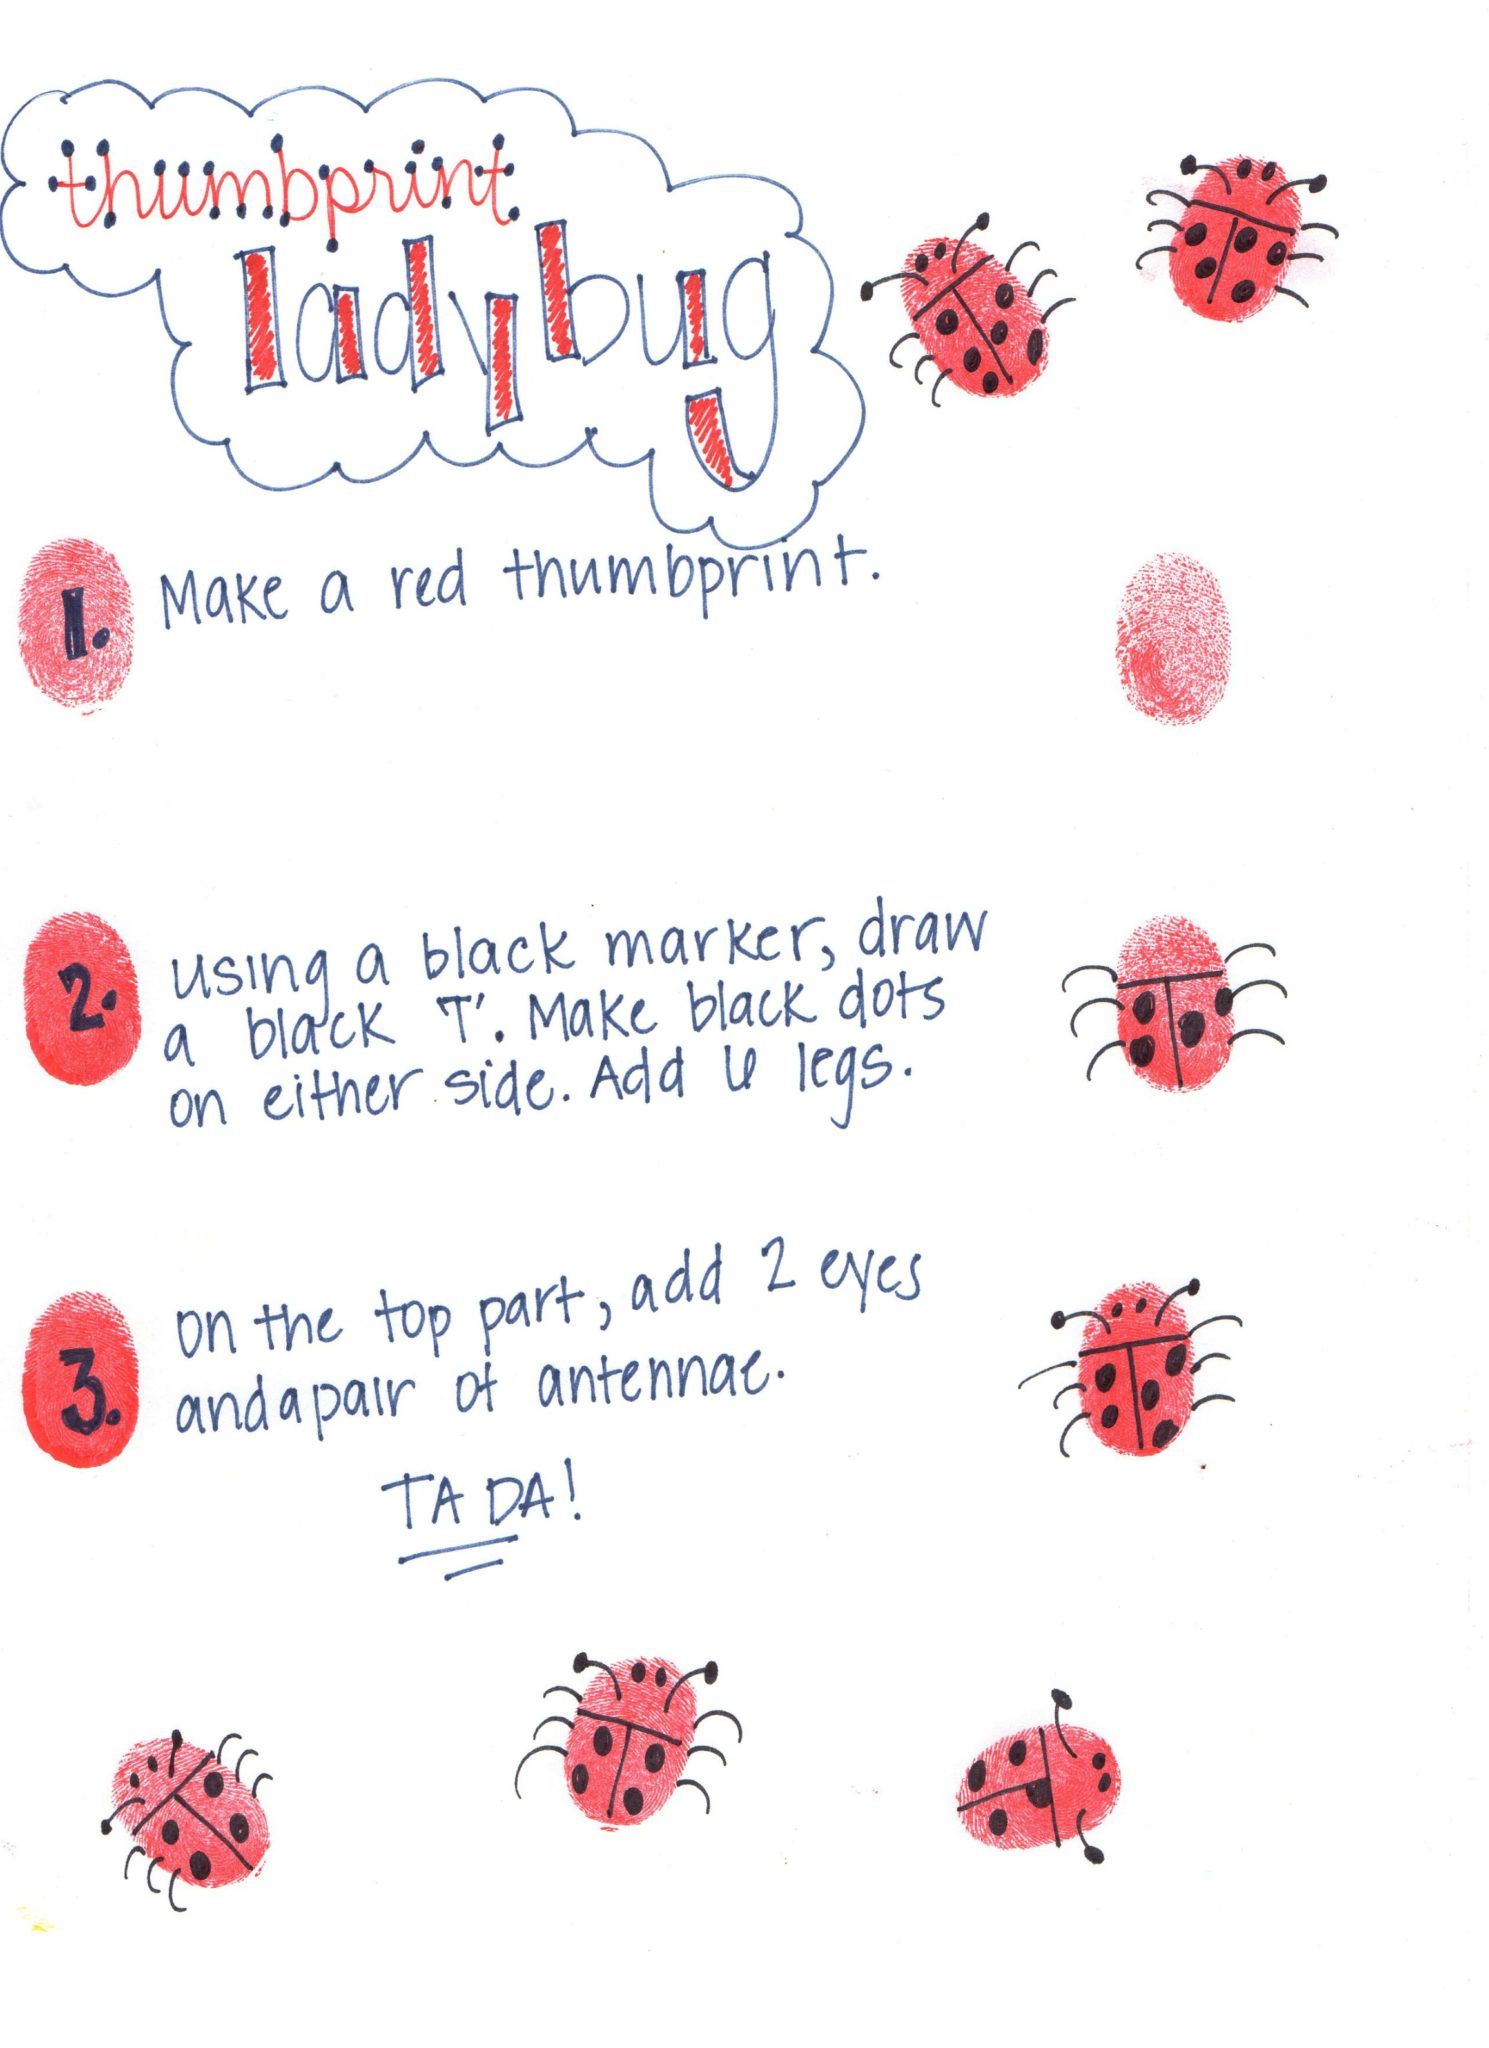 thumbprint
ladybug
1. Make a red thumbprint.
2. using a black marker, draw
a black 'T'. Make black dots
on either side. Add 6 legs.
3. on the top part, add 2 eyes
and a pair of antennae.
TA DA!